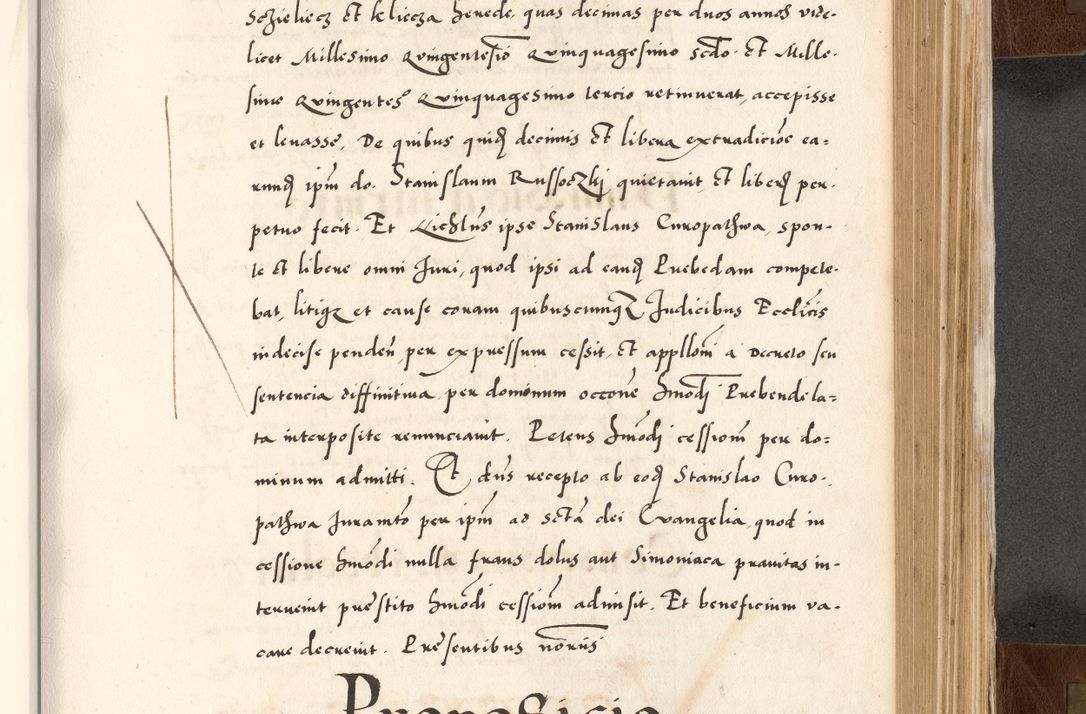 Schieliecz et keliecza herede, quas decimas per duos annos vide-
licet Millesimo Quingentesio Quinquagesimo scdo. et Mille-
simo Quingentes Quinquagesimo tercio retinuerat, accepisse
et leuasse, De quibus quid decimis et libera extradicioe ea=
rund ipm do. Stanislaum Russoczkj quietauit, et liberu per-
petuo fecit. Et Nichilus ipse Stanislaus Curopathwa, spon-
te et libere omni Iuri, quod ipsi ad eand Prebedam compete-
bat, litiqz et cause coram quibuscumqz Iudicibus Ecclicis
indecise penden per expressum cessit, et applloni a Decreto seu
sentencia diffinitiua per dominum occone hmodj Prebende la=
ta interposite renunciauit. Petens hmodj cessiom per do=
minum admitti. Et dns recepto ab eod Stanislao Curo-
pathwa Iuramto per ipm ad scta dei Evangelia, quod in
cessione hmodi nulla fraus dolus aut Simoniaca prauitas in-
terueint prestito hmodi cessiom admisit. Et beneficium va-
care decreuit. Presentibus norius
Proposicio